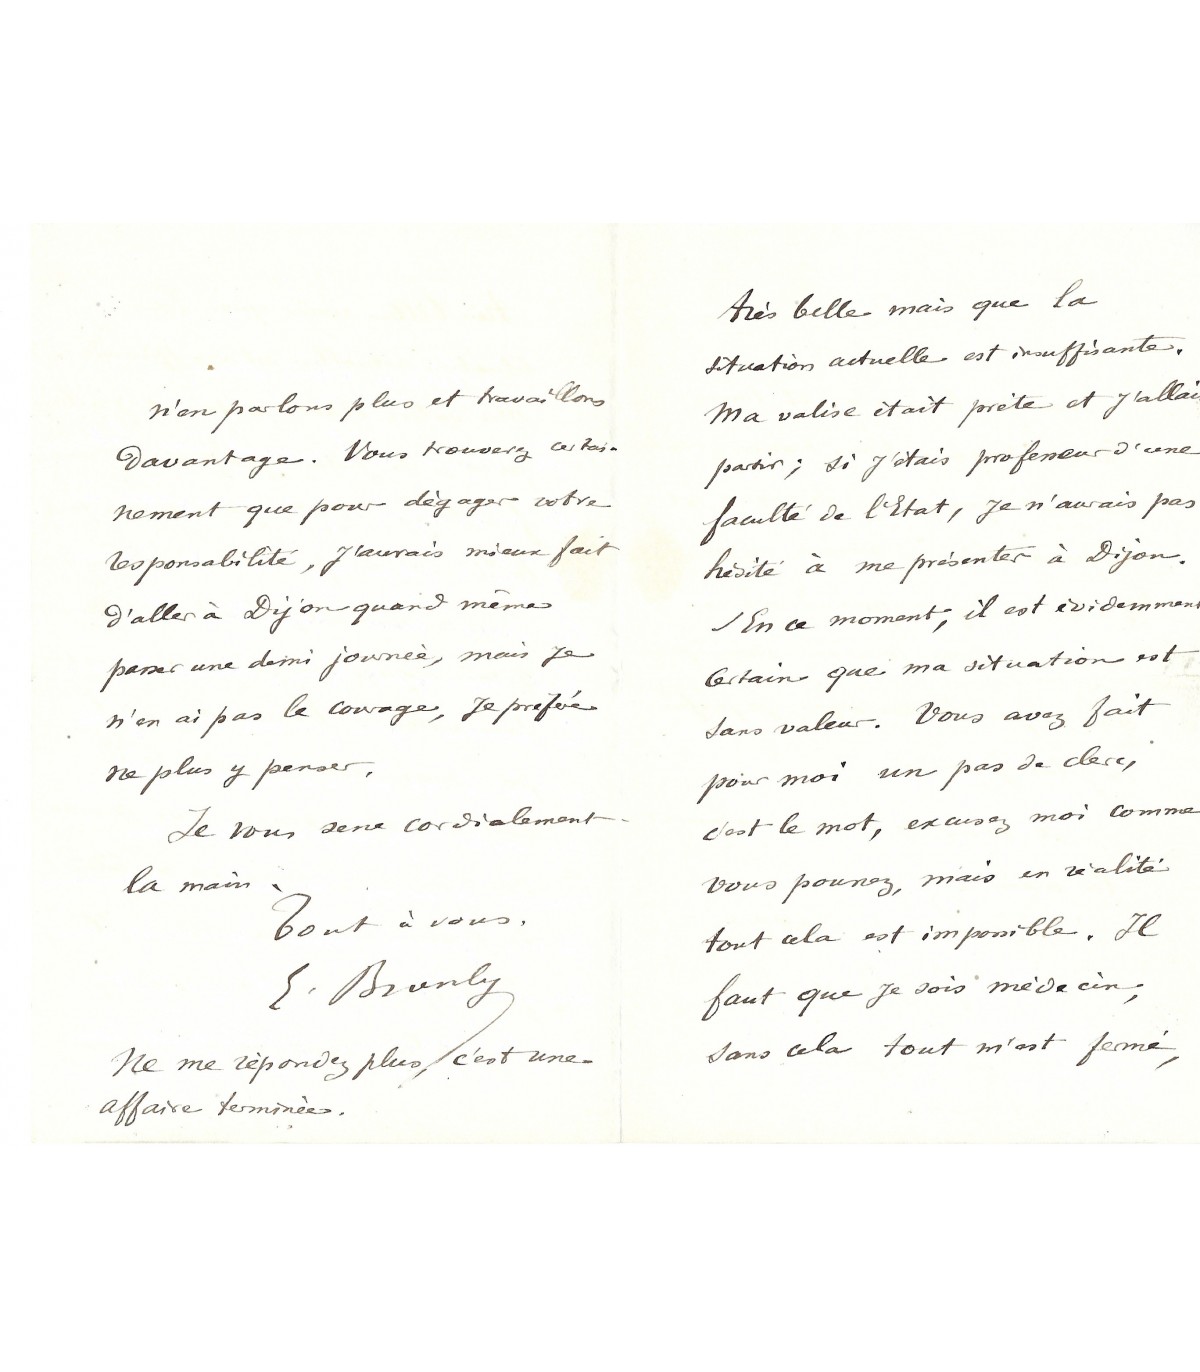 n'en parlons plus et travaillons
davantage. Vous trouverez certai-
nement que pour dégager votre
responsabilité, j'aurais mieux fait
d'aller à Dijon quand même
passer une demi journée, mais je
n'en ai pas le courage, je préfère
ne plus y penser.
Je vous serre cordialement
la main.
Tout à vous.
E. Branly
Ne me répondez plus, c'est une
affaire terminée.
très belle mais que la
situation actuelle est insuffisante.
Ma valise était prête et j'allais
partir; si j'étais professeur d'une
faculté de l'Etat, je n'aurais pas
hésité à me présenter à Dijon.
En ce moment, il est évidemment
certain que ma situation est
sans valeur. Vous avez fait
pour moi un pas de clerc,
c'est le mot, excusez moi comme
vous pouvez, mais en réalité
tout cela est impossible. Il
faut que je sois médecin,
sans cela tout m'est fermé,